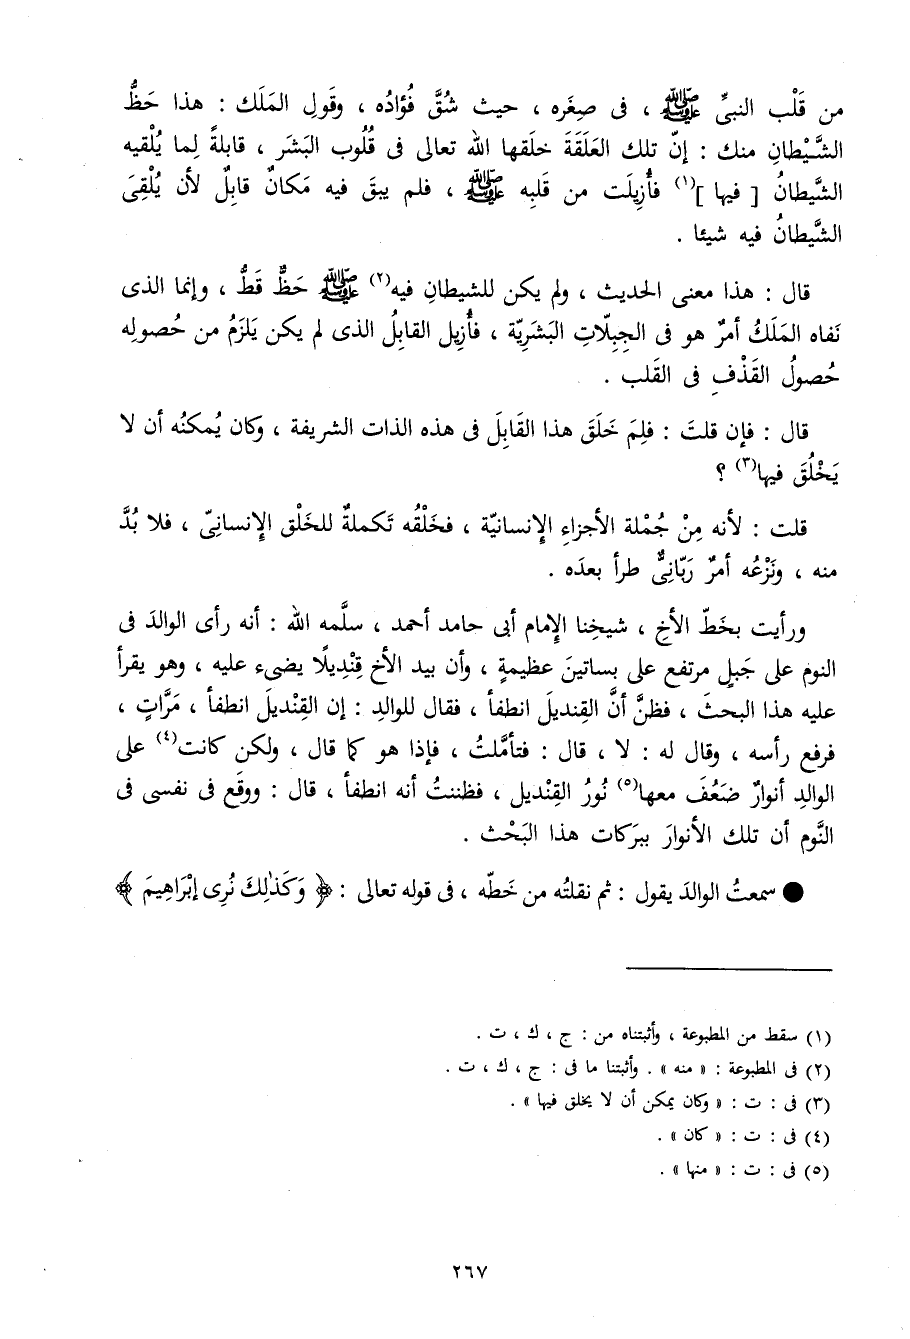 من قَلْب النبىِّ ﷺ ، فى صِغَره ، حيث شُقَّ فُؤادُه ، وقَولِ المَلَك : هذا حَظُّ
الشَّيْطانِ منك : إنّ تلك العَلَقَةَ خلَقها الله تعالى فى قُلُوب البَشَر ، قابلةً لِما يُلْقيه
الشَّيطانُ [ فيها ]⁽١⁾ فأُزِيلَت من قَلبِه ﷺ ، فلم يبقَ فيه مَكانٌ قابِلٌ لأن يُلْقِىَ
الشَّيطانُ فيه شيئا .
قال : هذا معنى الحديث ، ولم يكن للشيطانِ فيه⁽٢⁾ ﷺ حَظٌّ قَطُّ ، وإنما الذى
نَفاه المَلَكُ أمرٌ هو فى الجِبِلّاتِ البَشَرِيّة ، فأُزِيل القابِلُ الذى لم يكن يَلزَمُ من حُصولِه
حُصولُ القَذْفِ فى القَلب .
قال : فإن قلتَ : فلِمَ خَلَقَ هذا القَابِلَ فى هذه الذات الشريفة ، وكان يُمكنُه أن لا
يَخْلُقَ فيها⁽٣⁾ ؟
قلت : لأنه مِنْ جُمْلة الأجزاءِ الإنسانيّة ، فخَلْقُه تَكملةٌ للخَلْق الإنسانِىّ ، فلا بُدَّ
منه ، ونَزْعُه أمرٌ رَبّانِىٌّ طرأ بعدَه .
ورأيت بخَطّ الأخِ ، شيخِنا الإمام أبى حامد أحمد ، سلَّمه الله : أنه رأى الوالدَ فى
النوم على جَبلٍ مرتفع على بساتينَ عظيمةٍ ، وأن بيد الأخ قِنْدِيلًا يضىء عليه ، وهو يقرأ
عليه هذا البحثَ ، فظنَّ أنَّ القِنديلَ انطفأ ، فقال للوالدِ : إن القِنديلَ انطفأ ، مَرَّاتٍ ،
فرفع رأسه ، وقال له : لا ، قال : فتأمَّلتُ ، فإذا هو كما قال ، ولكن كانت⁽٤⁾ على
الوالدِ أنوارٌ ضَعُفَ معها⁽٥⁾ نُورُ القِنْديل ، فظننتُ أنه انطفأ ، قال : ووقَع فى نفسى فى
النَّوم أن تلك الأنوارَ ببرَكات هذا البَحْث .
● سمعتُ الوالدَ يقول : ثم نقلتُه من خَطّه ، فى قوله تعالى : ﴿ وَكَذٰلِكَ نُرِى إبْرَاهِيمَ ﴾
(١) سقط من المطبوعة ، وأثبتناه من : ج ، ك ، ت .
(٢) فى المطبوعة : « منه » . وأثبتنا ما فى : ج ، ك ، ت .
(٣) فى : ت : « وكان يمكن أن لا يخلق فيها » .
(٤) فى : ت : « كان » .
(٥) فى : ت : « منها » .
٢٦٧